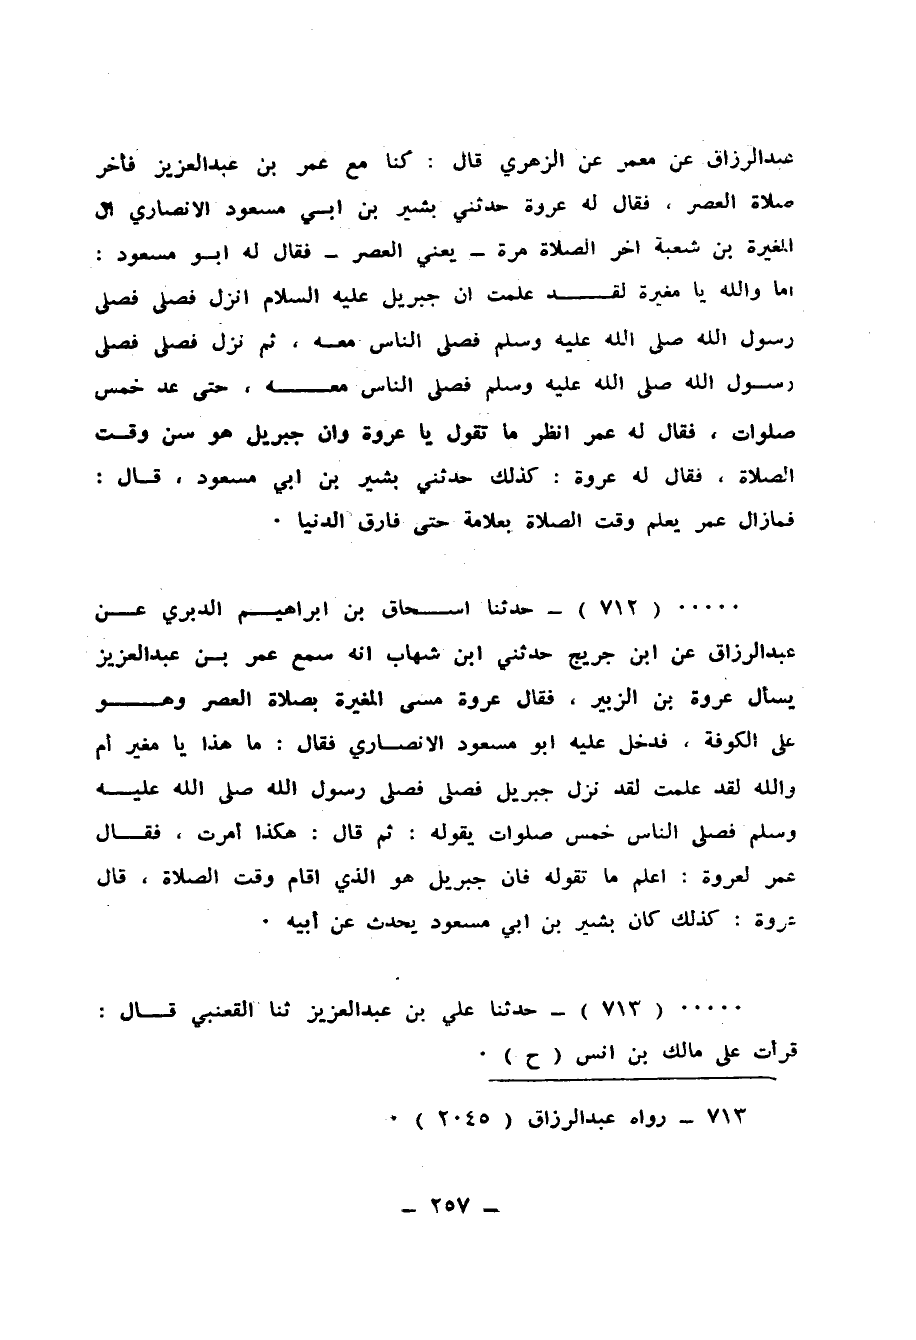 عبدالرزاق عن معمر عن الزهري قال : كنا مع عمر بن عبدالعزيز فأخر
صلاة العصر ، فقال له عروة حدثني بشير بن ابي مسعود الانصاري ال
المغيرة بن شعبة اخر الصلاة مرة ـ يعني العصر ـ فقال له ابو مسعود :
اما والله يا مغيرة لقد علمت ان جبريل عليه السلام انزل فصلى فصلى
رسول الله صلى الله عليه وسلم فصلى الناس معه ، ثم نزل فصلى فصلى
رسول الله صلى الله عليه وسلم فصلى الناس معه ، حتى عد خمس
صلوات ، فقال له عمر انظر ما تقول يا عروة وان جبريل هو سن وقت
الصلاة ، فقال له عروة : كذلك حدثني بشير بن ابي مسعود ، قال :
فمازال عمر يعلم وقت الصلاة بعلامة حتى فارق الدنيا ٠
٠٠٠٠٠ ( ٧١٢ ) ـ حدثنا اسحاق بن ابراهيم الدبري عن
عبدالرزاق عن ابن جريج حدثني ابن شهاب انه سمع عمر بن عبدالعزيز
يسأل عروة بن الزبير ، فقال عروة مسى المغيرة بصلاة العصر وهو
على الكوفة ، فدخل عليه ابو مسعود الانصاري فقال : ما هذا يا مغير أم
والله لقد علمت لقد نزل جبريل فصلى فصلى رسول الله صلى الله عليه
وسلم فصلى الناس خمس صلوات يقوله : ثم قال : هكذا أمرت ، فقال
عمر لعروة : اعلم ما تقوله فان جبريل هو الذي اقام وقت الصلاة ، قال
عروة : كذلك كان بشير بن ابي مسعود يحدث عن أبيه ٠
٠٠٠٠٠ ( ٧١٣ ) ـ حدثنا علي بن عبدالعزيز ثنا القعنبي قال :
قرأت على مالك بن انس ( ح ) ٠
٧١٣ ـ رواه عبدالرزاق ( ٢٠٤٥ ) ٠
ـ ٢٥٧ ـ